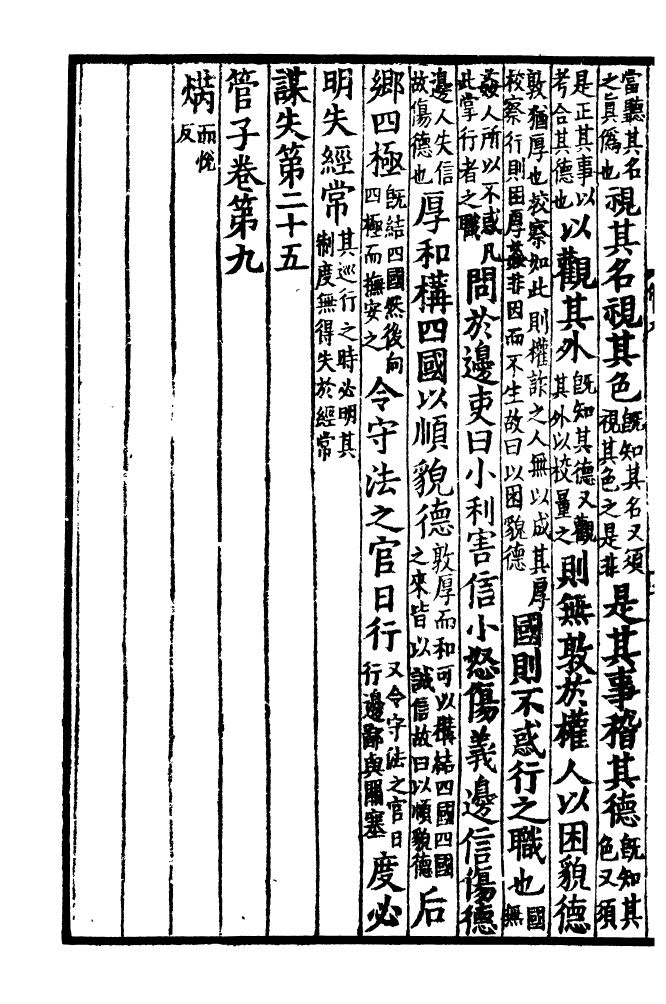 當聽其名之眞僞也視其名視其色既知其名又須視其色之是非是其事稽其德既知其色又須
是正其事以考合其德也以觀其外既知其德又觀其外以校量之則無敦於權人以困貌德
敦猶厚也校察如此則權詐之人無以成其厚校察行則困厚姦非因而不生故曰以困貌德國則不惑行之職也國無
姦人所以不惑凡此掌行者之職問於邊吏曰小利害信小怒傷義邊信傷德
邊人失信故傷德也厚和構四國以順貌德敦厚而和可以構結四國四國之來皆以誠信故曰以順貌德后
鄉四極既結四國然後向四極而撫安之令守法之官日行又令守法之官日行邊鄙與關塞度必
明失經常其巡行之時必明其制度無得失於經常
謀失第二十五
管子卷第九
焫而悅反